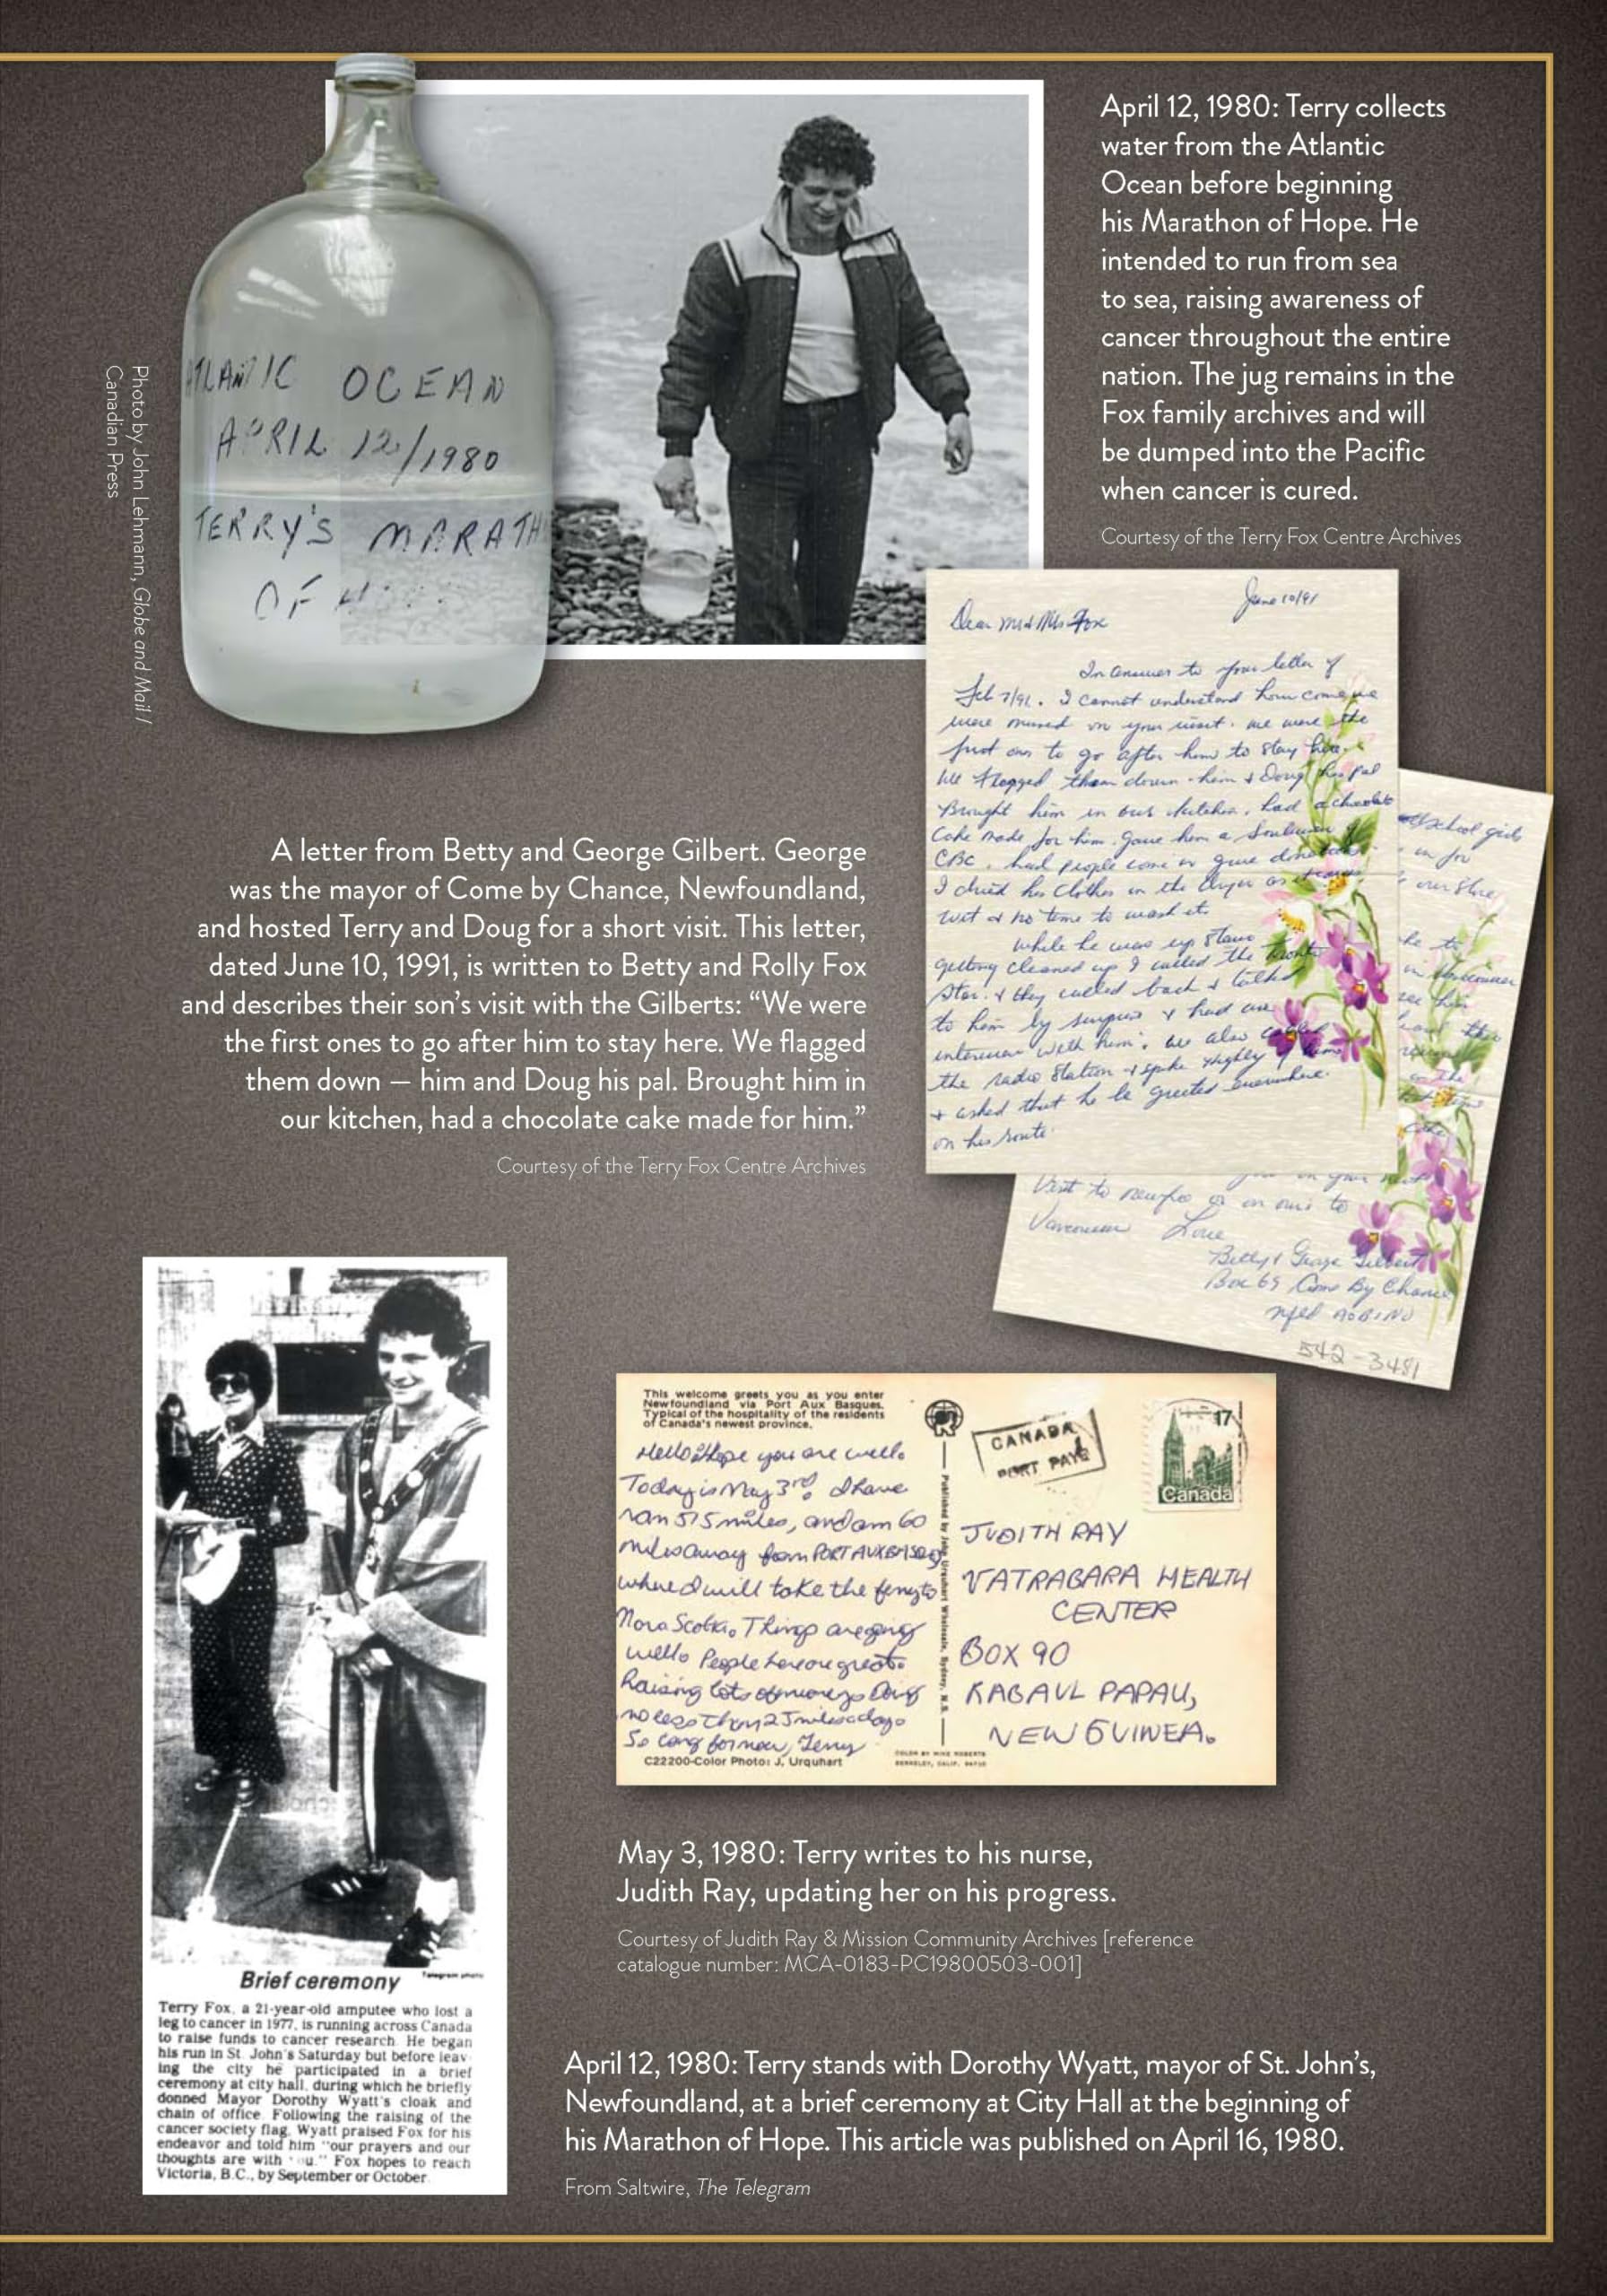 ATLANTIC OCEAN
APRIL 12/1980
TERRY'S MARATH
OF
Photo by John Lehmann, Globe and Mail /
Canadian Press
April 12, 1980: Terry collects
water from the Atlantic
Ocean before beginning
his Marathon of Hope. He
intended to run from sea
to sea, raising awareness of
cancer throughout the entire
nation. The jug remains in the
Fox family archives and will
be dumped into the Pacific
when cancer is cured.
Courtesy of the Terry Fox Centre Archives
June 10/91
Dear Mr & Mrs Fox
In answer to your letter of
Feb 7/91. I cannot understand how come we
were missed on your visit. We were the
first ones to go after him to stay here.
We flagged them down - him & Doug his pal
Brought him in our kitchen, had a chocolate
Cake made for him. Gave him a
CBC. had people come or give donations
I dried his clothes in the dryer as
wet & no time to wash it.
While he was up stairs
getting cleaned up I called the Toronto
Star. & they called back & talked
to him by surprise & had an
interview with him. We also called
the radio station & spoke highly of him
& asked that he be greeted everywhere
on his route.
school girls
our
to
Vancouver
see him
the
visit to newfie or on ours to
Vancouver Love
Betty & George Gilbert
Box 69 Come By Chance
Nfld A0B1N0
542-3481
A letter from Betty and George Gilbert. George
was the mayor of Come by Chance, Newfoundland,
and hosted Terry and Doug for a short visit. This letter,
dated June 10, 1991, is written to Betty and Rolly Fox
and describes their son's visit with the Gilberts: “We were
the first ones to go after him to stay here. We flagged
them down — him and Doug his pal. Brought him in
our kitchen, had a chocolate cake made for him.”
Courtesy of the Terry Fox Centre Archives
This welcome greets you as you enter
Newfoundland via Port Aux Basques.
Typical of the hospitality of the residents
of Canada's newest province.
Hello! Hope you are well.
Today is May 3rd. I have
ran 515 miles, and am 60
miles away from PORT AUX BASQ
where I will take the ferry to
Nova Scotia. Things are going
well. People here are great.
Raising lots of money. Doing
no less than 25 miles a day.
So long for now, Terry
C22200-Color Photo: J. Urquhart
Published by John Urquhart Wholesale, Sydney, N.S.
COLOR BY MIKE ROBERTS
BERKELEY, CALIF. 94710
CANADA
PORT PAYÉ
17
Canada
JUDITH RAY
VATRABARA HEALTH
CENTER
BOX 90
RABAUL PAPAU,
NEW GUINEA.
May 3, 1980: Terry writes to his nurse,
Judith Ray, updating her on his progress.
Courtesy of Judith Ray & Mission Community Archives [reference
catalogue number: MCA-0183-PC19800503-001]
Telegram photo
Brief ceremony
Terry Fox, a 21-year-old amputee who lost a
leg to cancer in 1977, is running across Canada
to raise funds to cancer research. He began
his run in St. John's Saturday but before leav-
ing the city he participated in a brief
ceremony at city hall, during which he briefly
donned Mayor Dorothy Wyatt's cloak and
chain of office. Following the raising of the
cancer society flag, Wyatt praised Fox for his
endeavor and told him "our prayers and our
thoughts are with ou." Fox hopes to reach
Victoria, B.C., by September or October.
April 12, 1980: Terry stands with Dorothy Wyatt, mayor of St. John's,
Newfoundland, at a brief ceremony at City Hall at the beginning of
his Marathon of Hope. This article was published on April 16, 1980.
From Saltwire, The Telegram